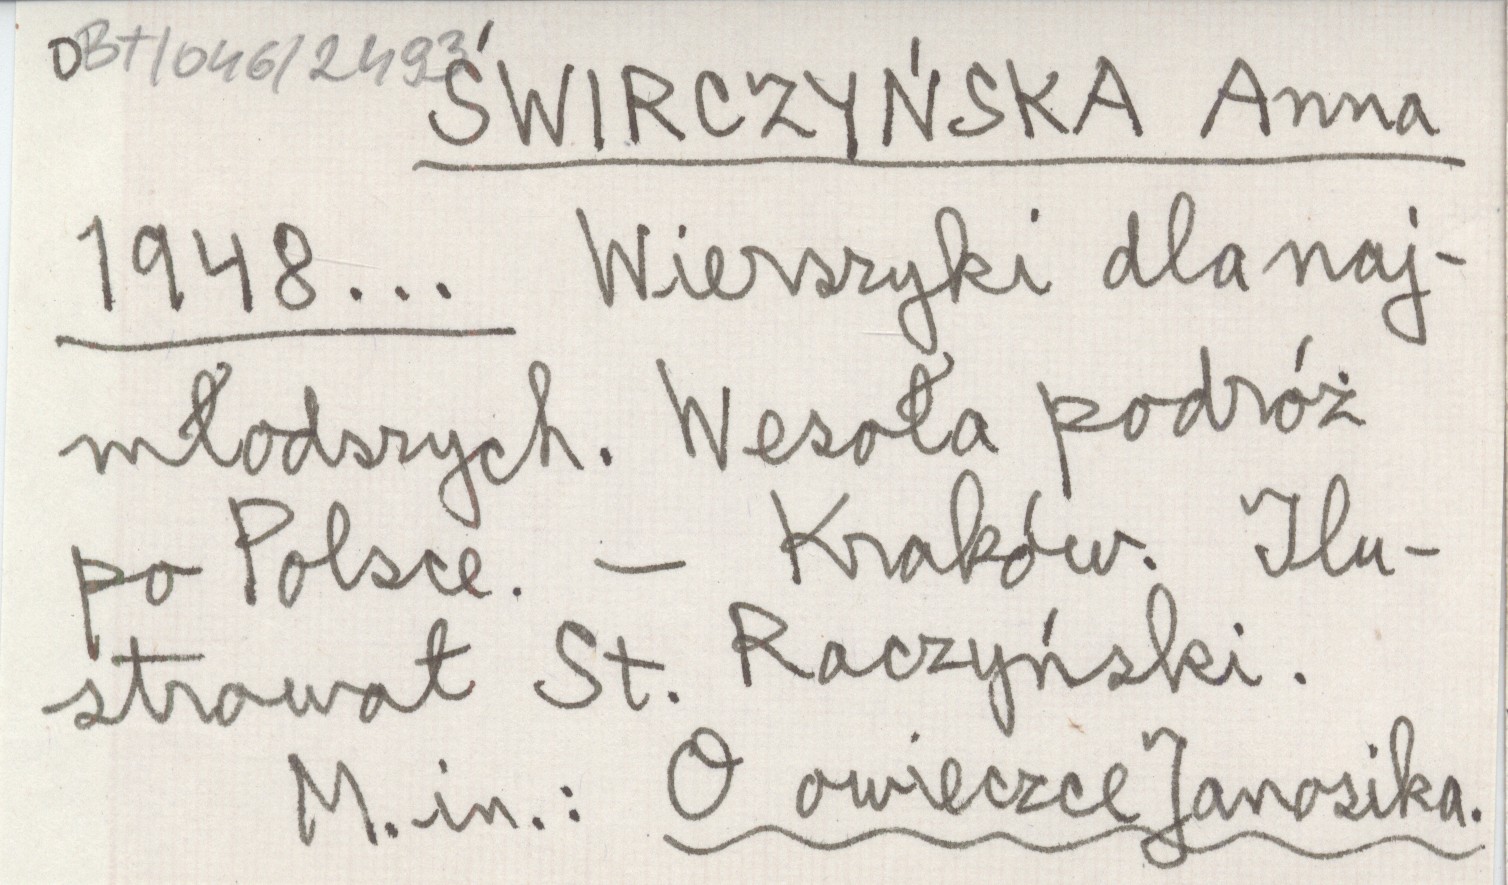 OBT/046/2493
ŚWIRCZYŃSKA Anna
1948... Wierszyki dla naj-
młodszych. Wesoła podróż
po Polsce. — Kraków. Ilu-
strował St. Raczyński.
M. in.: O owieczce Janosika.